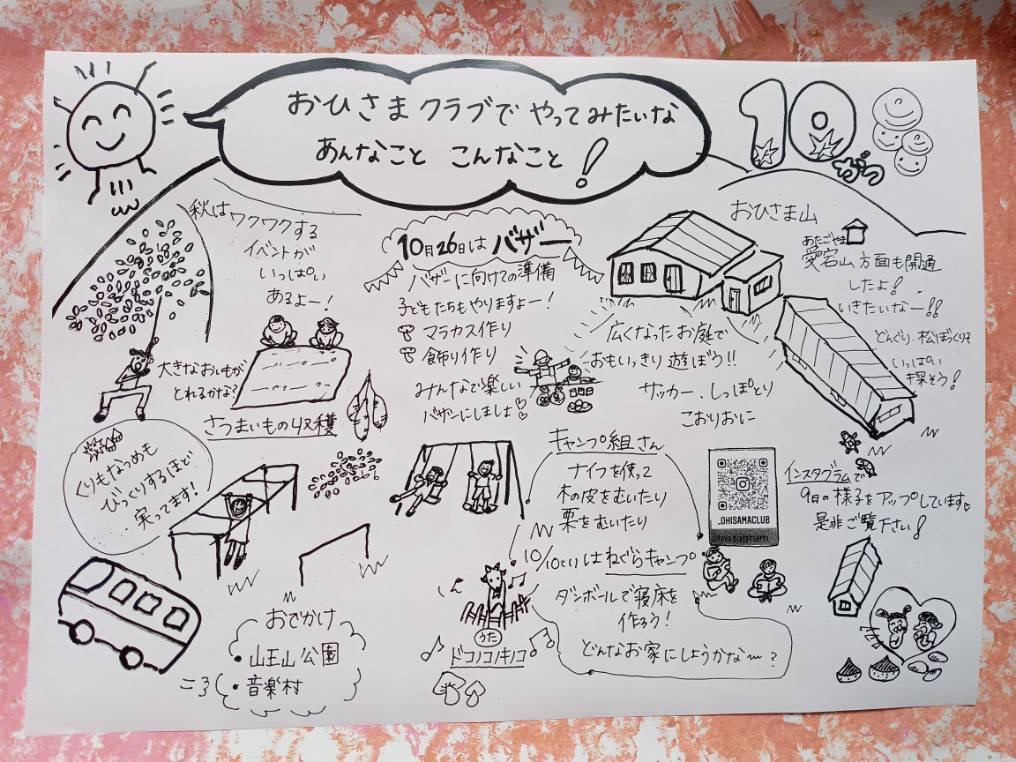 おひさまクラブで やってみたいな
あんなこと こんなこと!
10がつ
秋はワクワクする
イベントが
いっぱい
あるよー!
大きなおいもが
とれるかな?
さつまいもの収穫
くりもなつめも
びっくりするほど
実ってます!
10月26日は バザー
バザーに向けての準備
子どもたちもやりますよー!
マラカス作り
飾り作り
みんなで楽しい
バザーにしましょ♡
おひさま山
あたごやま
愛宕山方面も開通
したよ!
いきたいなー!!
どんぐり、松ぼっくりを
いっぱい
探そう!
広くなったお庭で
おもいっきり遊ぼう!!
サッカー、しっぽとり
こおりおに
キャンプ組さん
ナイフを使って
木の皮をむいたり
栗をむいたり
10/10(とい)はねぐらキャンプ
ダンボールで寝床を
作ろう!
どんなお家にしようかな〜?
_OHISAMACLUB
Instagram
インスタグラムで
9月の様子をアップしています♡
是非ご覧下さい!
おでかけ
・山王山公園
・音楽村
うた
ドコノコノキノコ